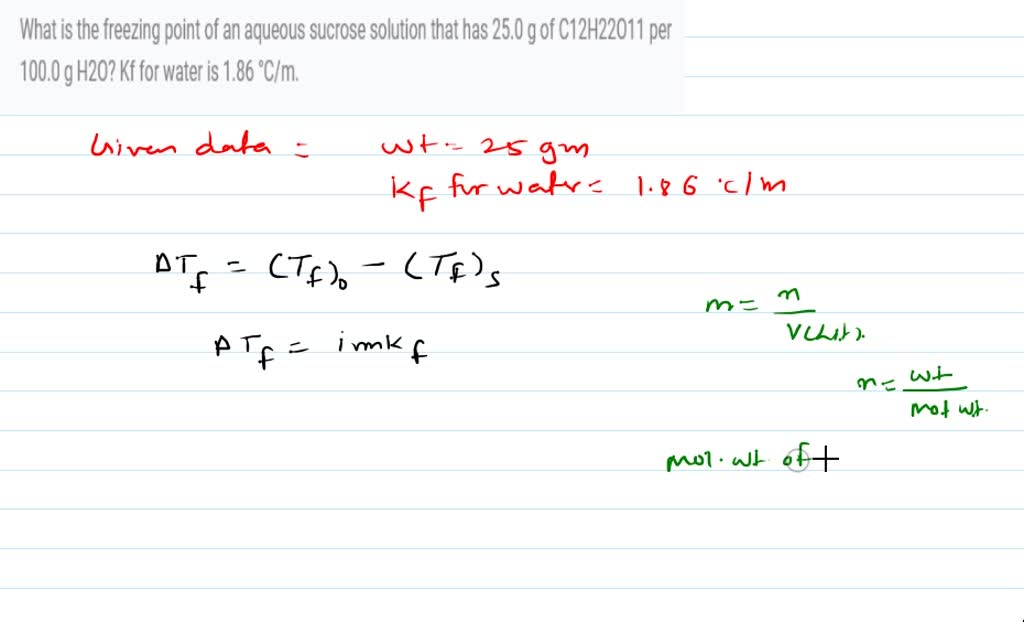 What is the freezing point of an aqueous sucrose solution that has 25.0 g of C12H22O11 per
100.0 g H2O? Kf for water is 1.86 °C/m.
Given data = wt = 25 gm
Kf for water = 1.86 °C/m
ΔTf = (Tf)o - (Tf)s
m = n / V(Lit).
ΔTf = imKf
n = wt / mol wt.
mol. wt of